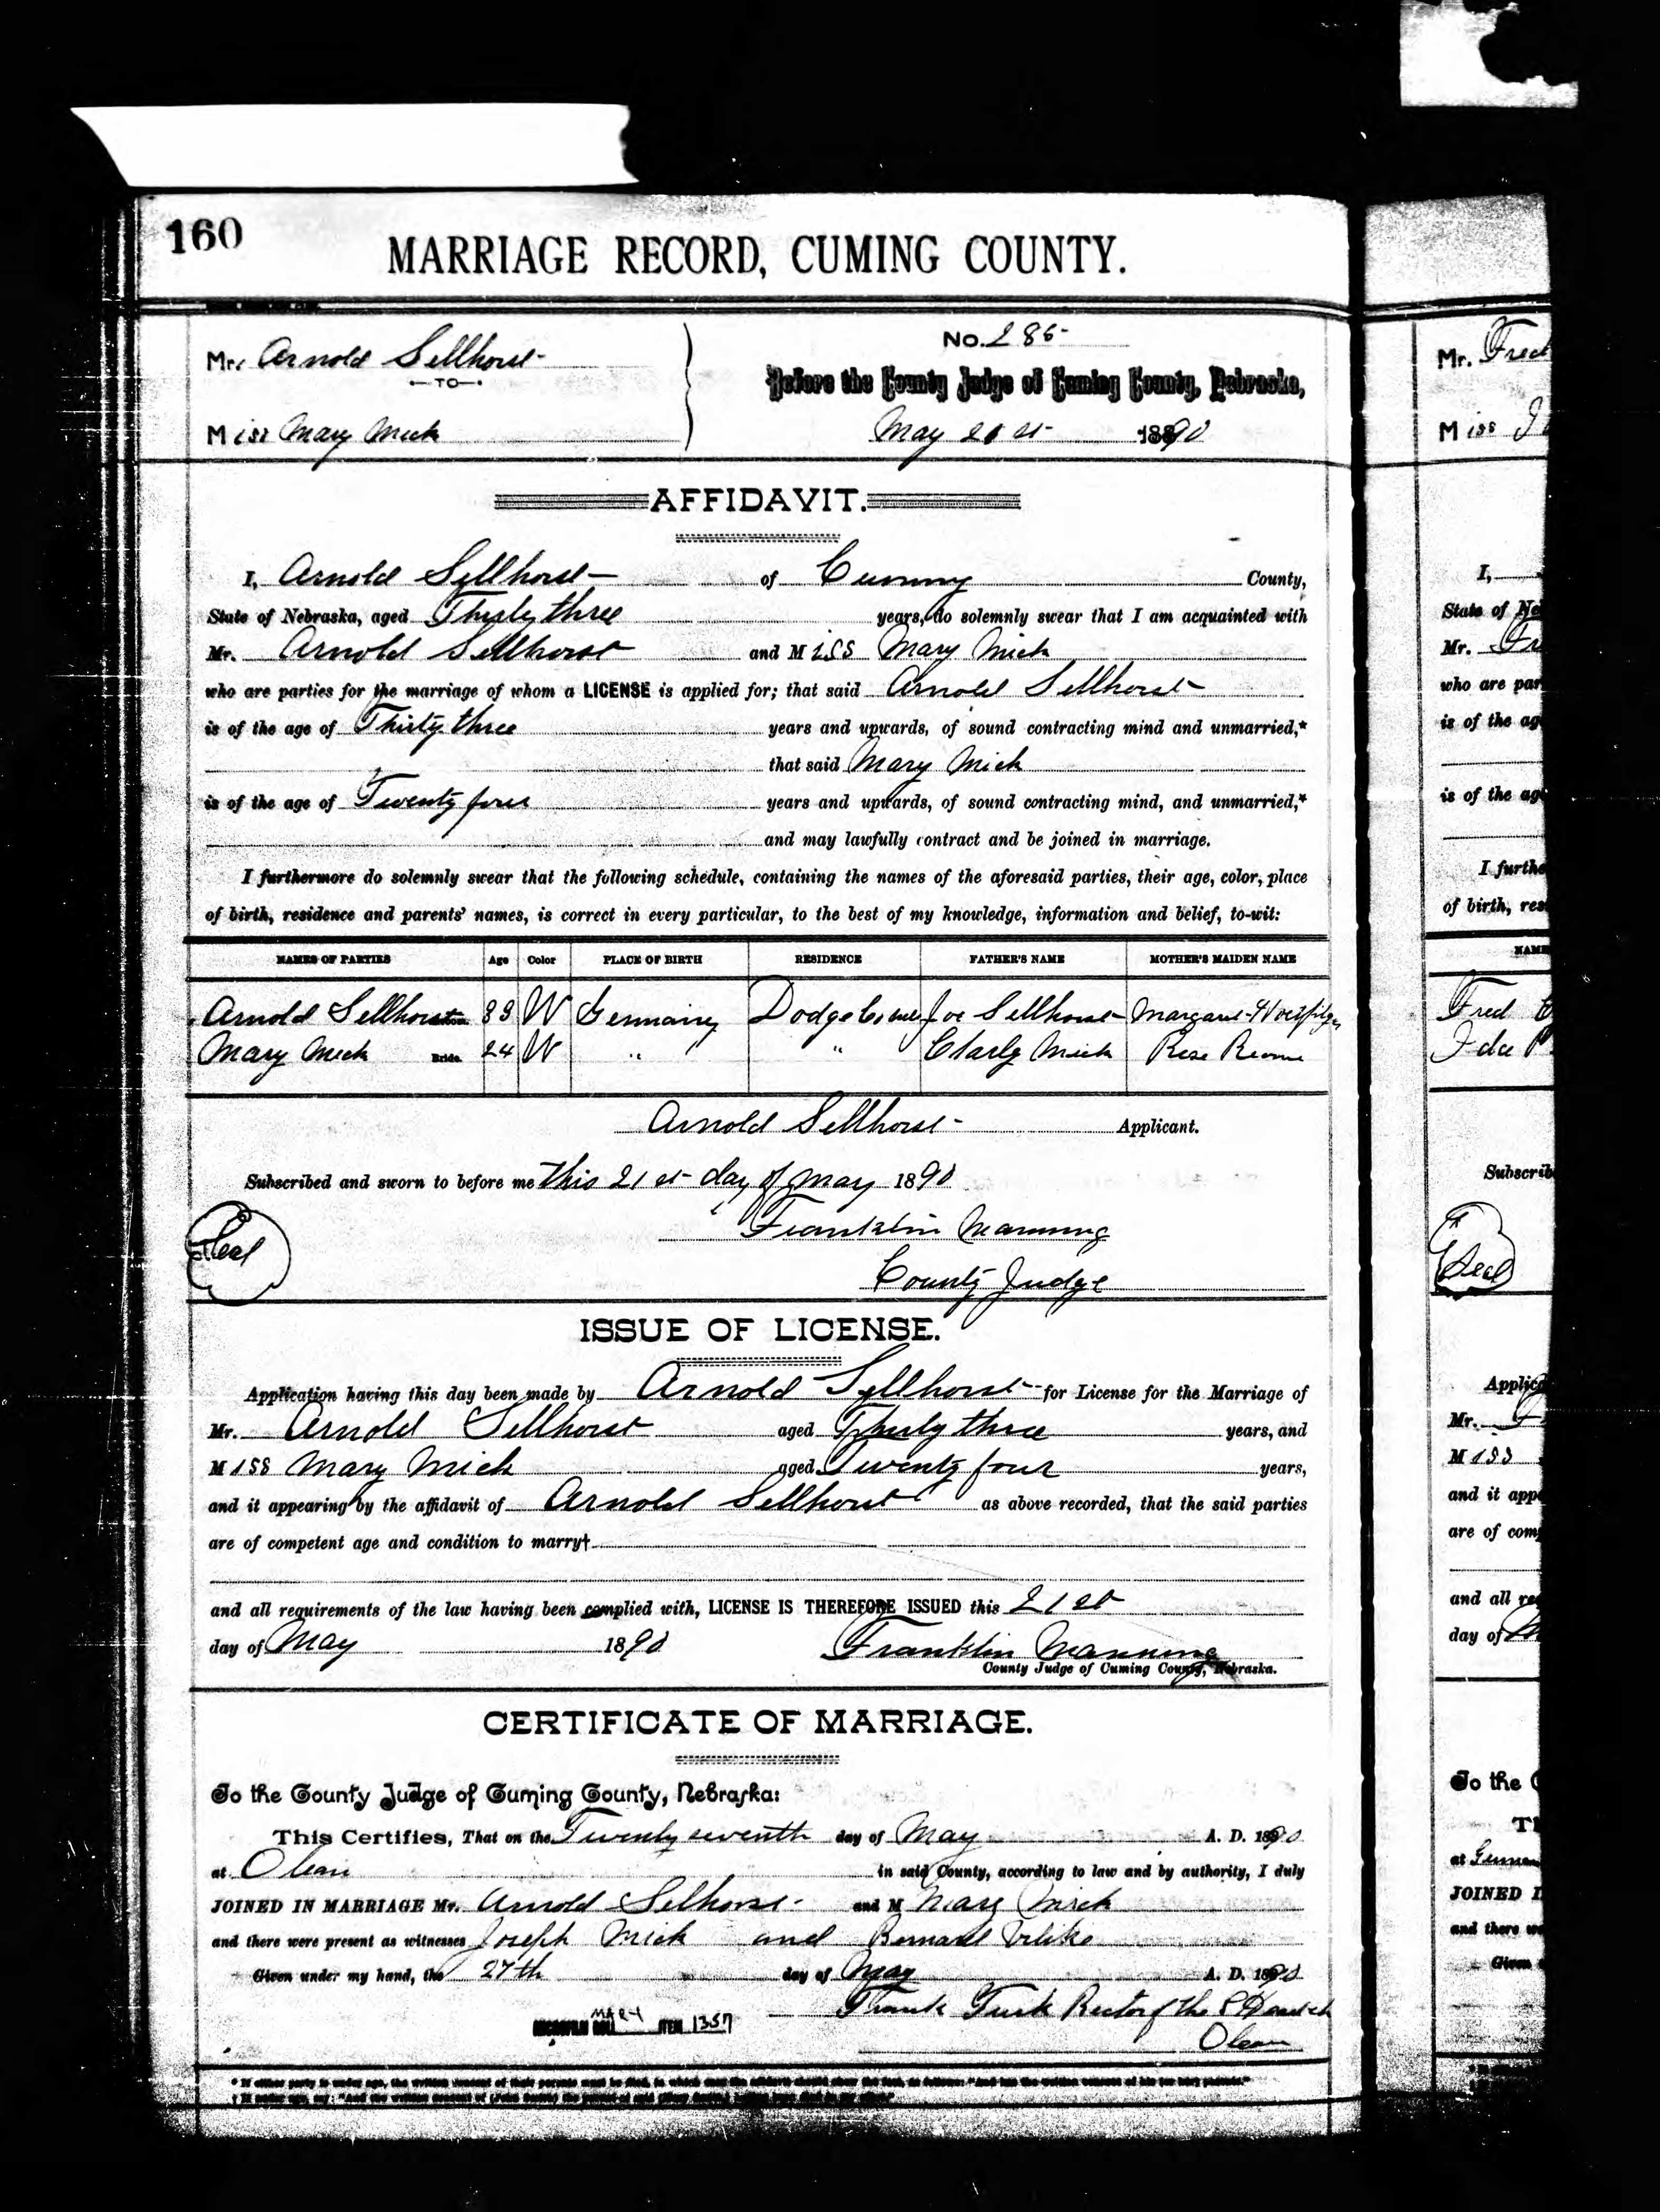 160
MARRIAGE RECORD, CUMING COUNTY.
Mr. Arnold Sellhorst
—TO—
Miss Mary Mick
No. 285
Before the County Judge of Cuming County, Nebraska,
May 21st 1890
AFFIDAVIT.
I, Arnold Sellhorst of Cuming County,
State of Nebraska, aged Thirty three years, do solemnly swear that I am acquainted with
Mr. Arnold Sellhorst and Miss Mary Mick
who are parties for the marriage of whom a LICENSE is applied for; that said Arnold Sellhorst
is of the age of Thirty three years and upwards, of sound contracting mind and unmarried,*
that said Mary Mick
is of the age of Twenty four years and upwards, of sound contracting mind, and unmarried,*
and may lawfully contract and be joined in marriage.
I furthermore do solemnly swear that the following schedule, containing the names of the aforesaid parties, their age, color, place
of birth, residence and parents' names, is correct in every particular, to the best of my knowledge, information and belief, to-wit:
NAMES OF PARTIES Age Color PLACE OF BIRTH RESIDENCE FATHER'S NAME MOTHER'S MAIDEN NAME
Arnold Sellhorst 33 W Germany Dodge Joe Sellhorst Margaret
Mary Mick Bride. 24 W " " " Charly Mick Rose
Arnold Sellhorst Applicant.
Subscribed and sworn to before me this 21st day of May 1890
Seal
Franklin Manning
County Judge
ISSUE OF LICENSE.
Application having this day been made by Arnold Sellhorst for License for the Marriage of
Mr. Arnold Sellhorst aged Thirty three years, and
Miss Mary Mick aged Twenty four years,
and it appearing by the affidavit of Arnold Sellhorst as above recorded, that the said parties
are of competent age and condition to marry†
and all requirements of the law having been complied with, LICENSE IS THEREFORE ISSUED this 21st
day of May 1890 Franklin Manning
County Judge of Cuming County, Nebraska.
CERTIFICATE OF MARRIAGE.
To the County Judge of Cuming County, Nebraska:
This Certifies, That on the Twenty seventh day of May A. D. 1890
at Olean in said County, according to law and by authority, I duly
JOINED IN MARRIAGE Mr. Arnold Selhorst and M Mary Mick
and there were present as witnesses Joseph Mick and Bernard
Given under my hand, the 27th day of May A. D. 1890
Frank Turk Rector of the
Olean
ITEM 1357
Mr. Fred
Miss
I,
State of Ne
Mr. Fr
who are par
is of the ag
is of the ag
I furthe
of birth, res
NAME
Fred
Ida
Subscrib
Seal
Applic
Mr. F
Miss
and it app
are of com
and all re
day of
To the C
Th
at
JOINED I
and there we
Given